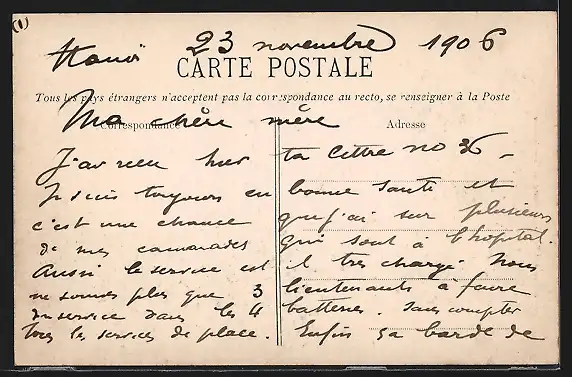 (1)
Hanoï 23 novembre 1906
CARTE POSTALE
Tous les pays étrangers n'acceptent pas la correspondance au recto, se renseigner à la Poste
Ma chère mère
Correspondance Adresse
J'ai reçu hier ta lettre no 36 –
Je suis toujours en bonne santé et
c'est une chance que j'ai sur plusieurs
de mes camarades qui sont à l'hopital.
Aussi le service est il très chargé. Nous
ne sommes plus que 3 lieutenants à faire
du service dans les 4 batteries. Sans compter
tous les services de place. Enfin sa garde de